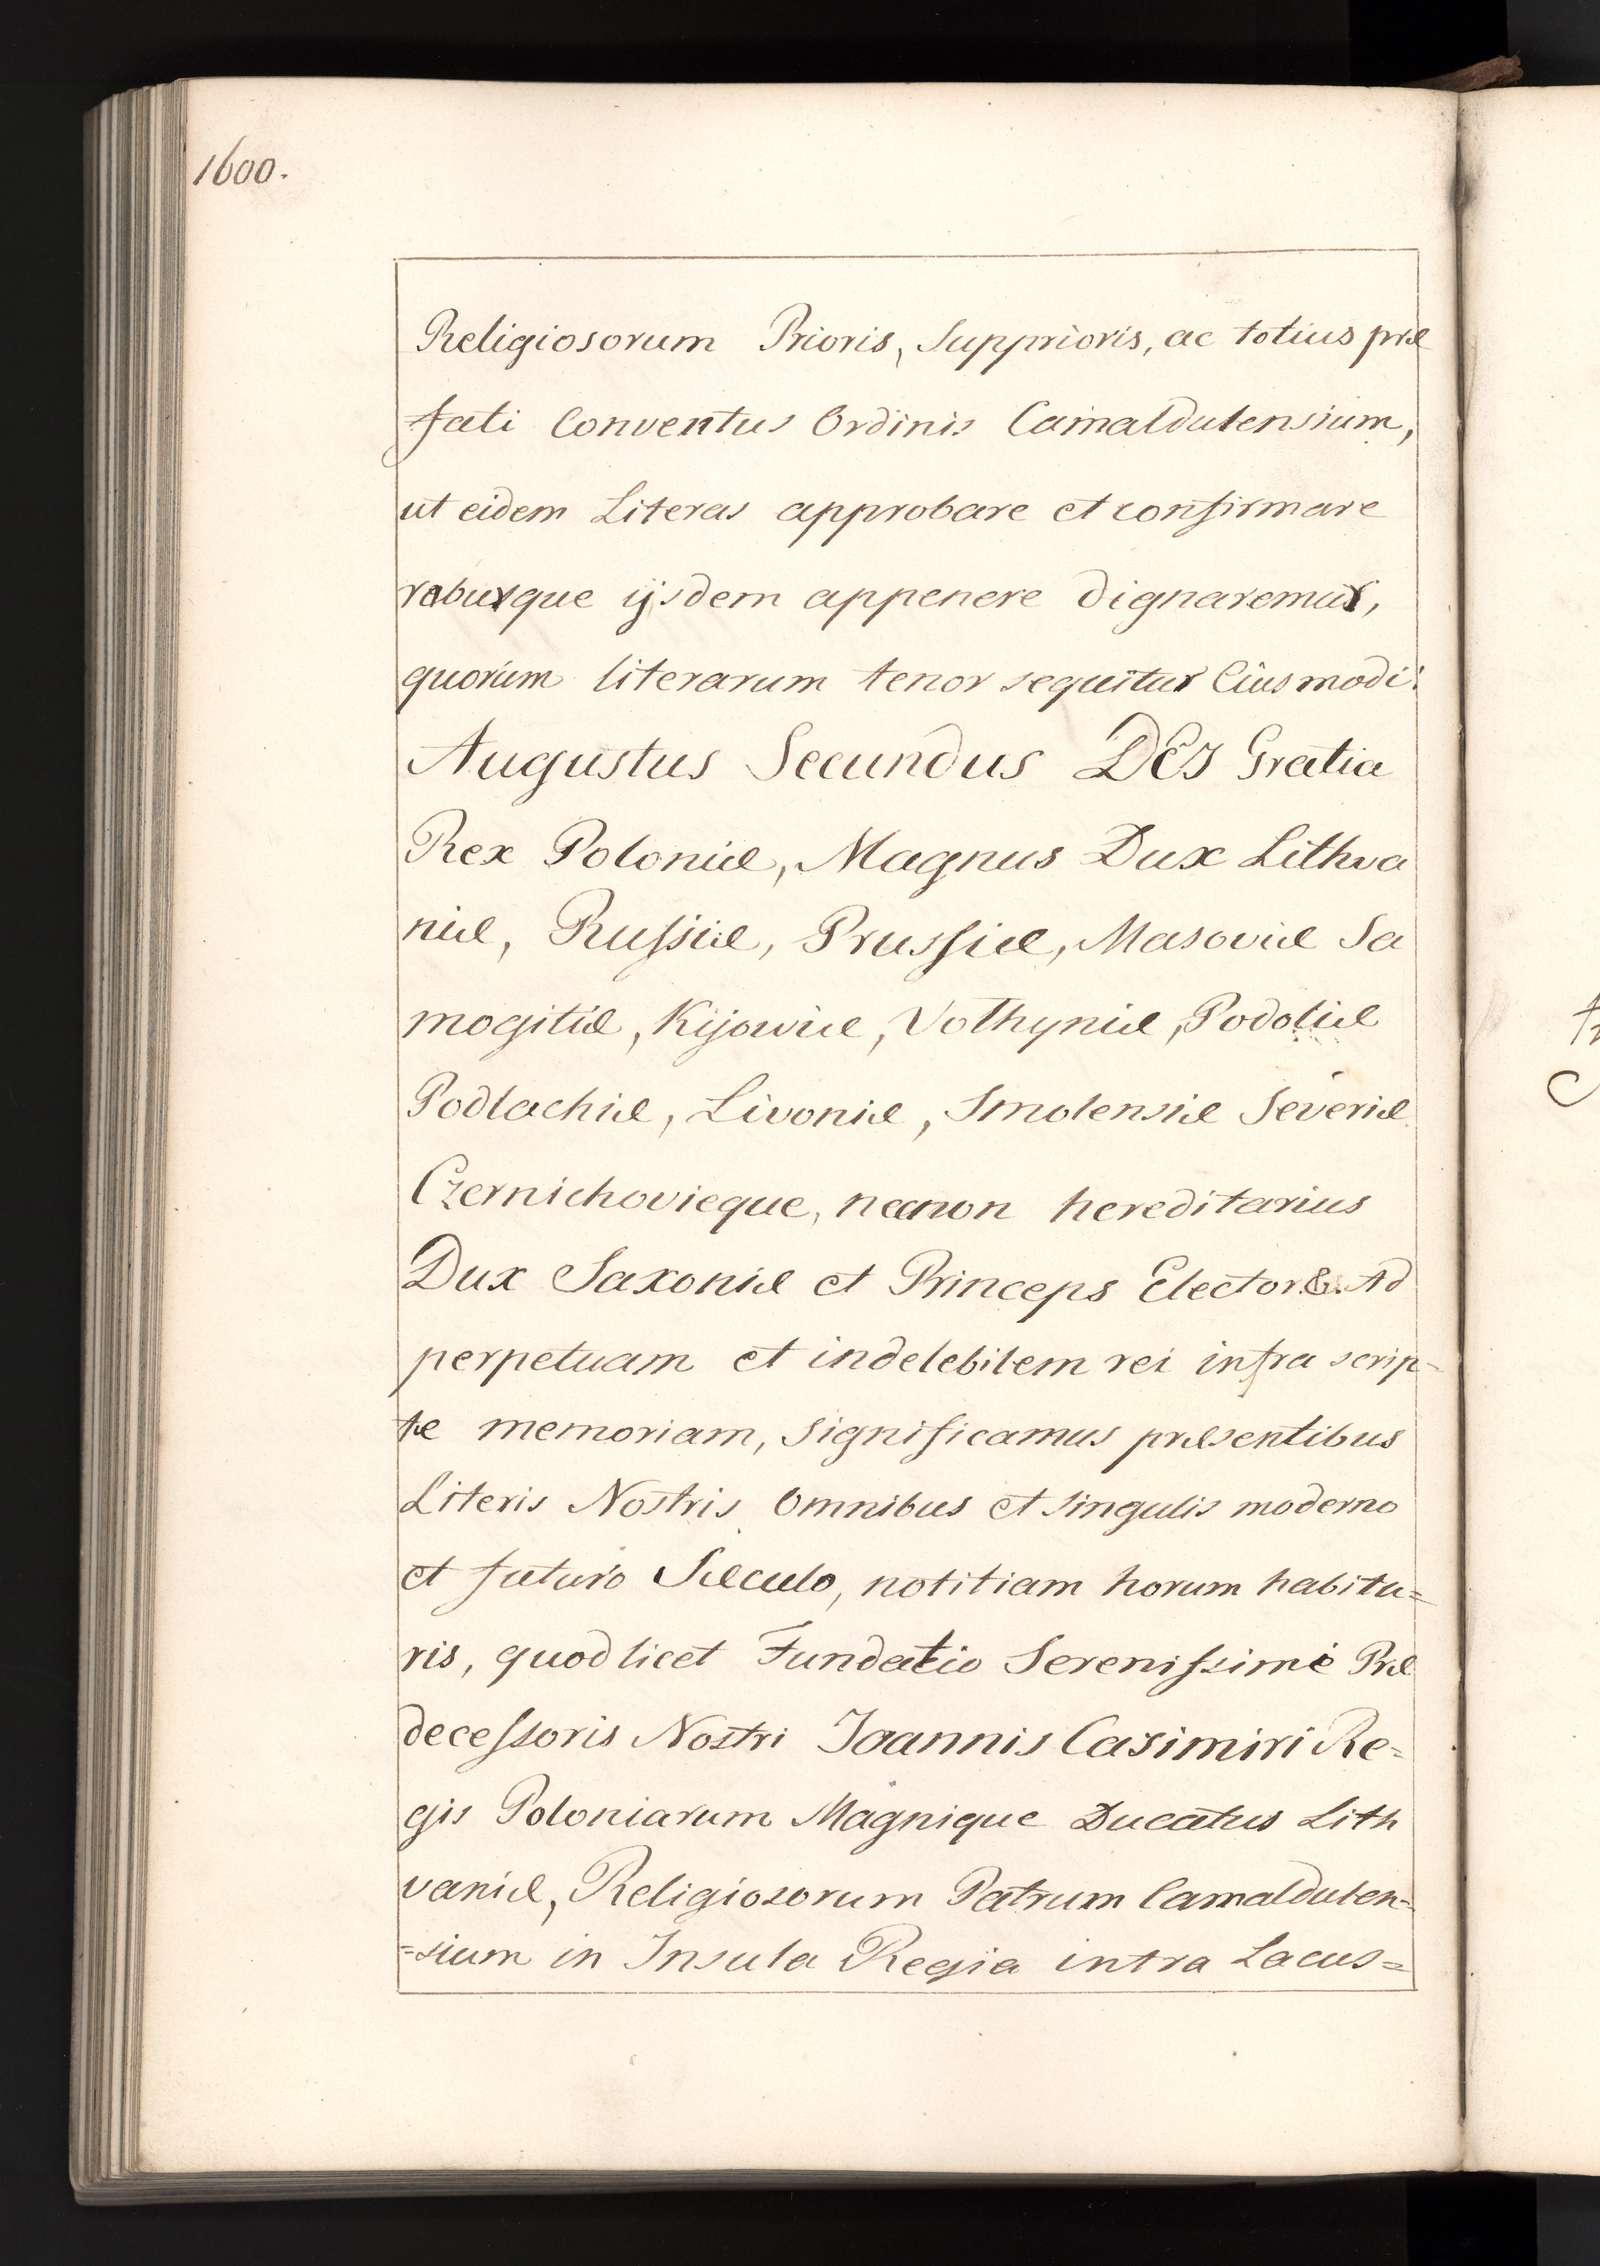 1600.
Religiosorum Prioris, Supprioris, ac totius præ
fati Conventus Ordinis Camaldulensium,
ut eidem Literas approbare et confirmare
roburque ijsdem appenere dignaremur,
quorum literarum tenor sequitur Eiusmodi:
Augustus Secundus DEJ Gratia
Rex Poloniæ, Magnus Dux Lithva
niæ, Russiæ, Prussiæ, Masoviæ Sa
mogitiæ, Kijoviæ, Volhyniæ, Podoliæ
Podlachiæ, Livoniæ, Smolensiæ Severiæ
Czernichovieque, necnon hereditarius
Dux Saxoniæ et Princeps Elector &. Ad
perpetuam et indelebilem rei infra scrip-
tæ memoriam, significamus præsentibus
Literis Nostris omnibus et singulis moderno
et futuro Sæculo, notitiam horum habitu=
ris, quod licet Fundatio Serenissimi Præ
decessoris Nostri Joannis Casimiri Re=
gis Poloniarum Magnique Ducatus Lith
vaniæ, Religiosorum Patrum Camaldulen=
=sium in Insula Regia intra Lacus=